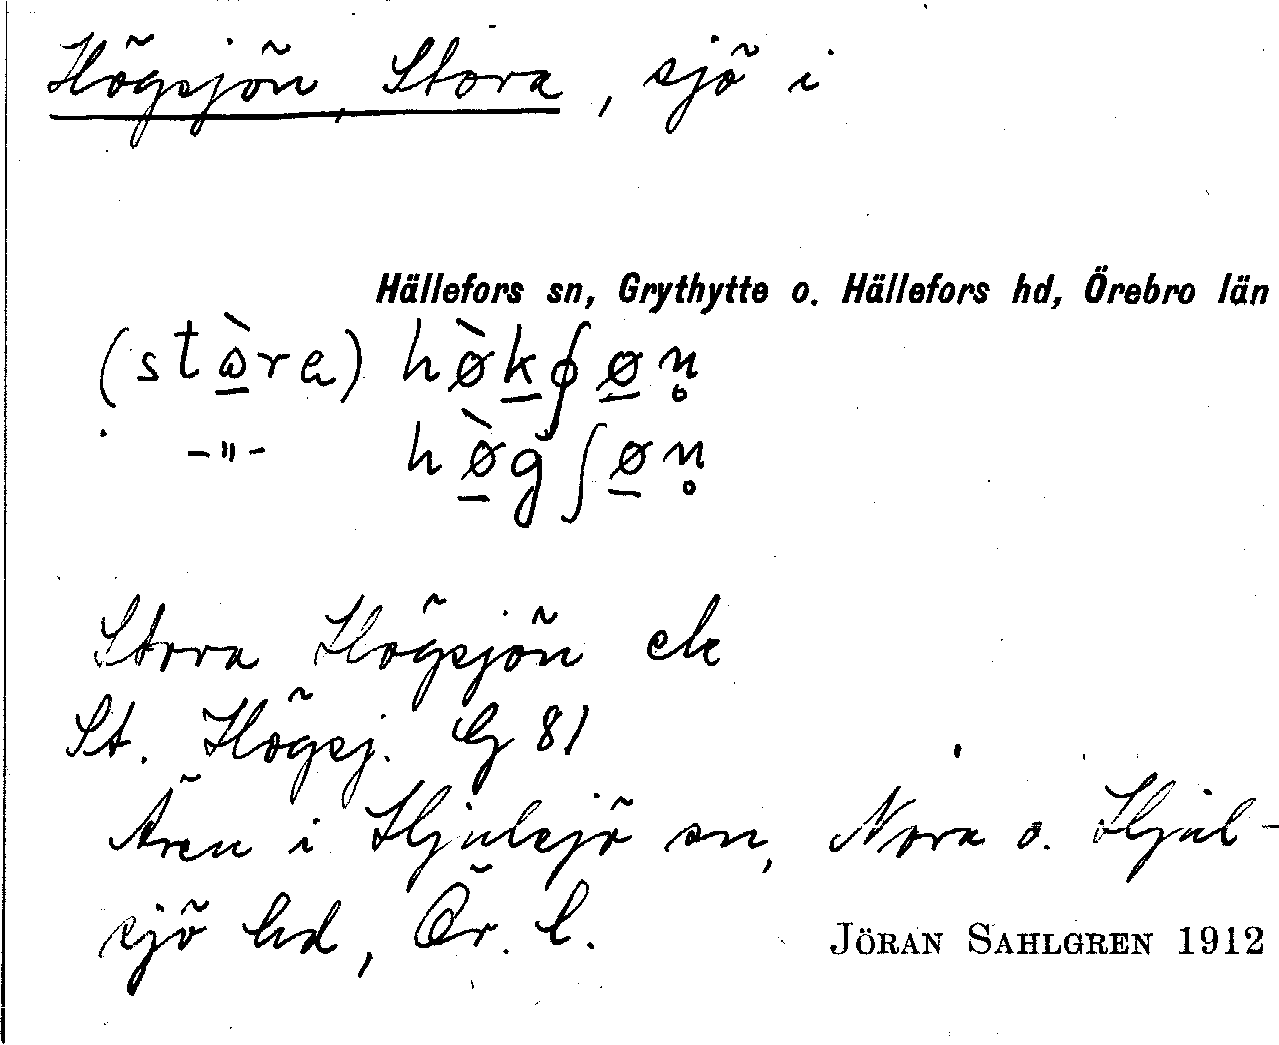 Högsjön, Stora, sjö i
Hällefors sn, Grythytte o. Hällefors hd, Örebro län
(stὼ̲ra) hø̀k̲ʃø̲n̥
-"- hø̲̀gʃø̲n̥
Stora Högsjön ek
St. Högsj. G 81
Även i Hjulsjö sn, Nora o. Hjul-
sjö hd, Ör. l.
JÖRAN SAHLGREN 1912